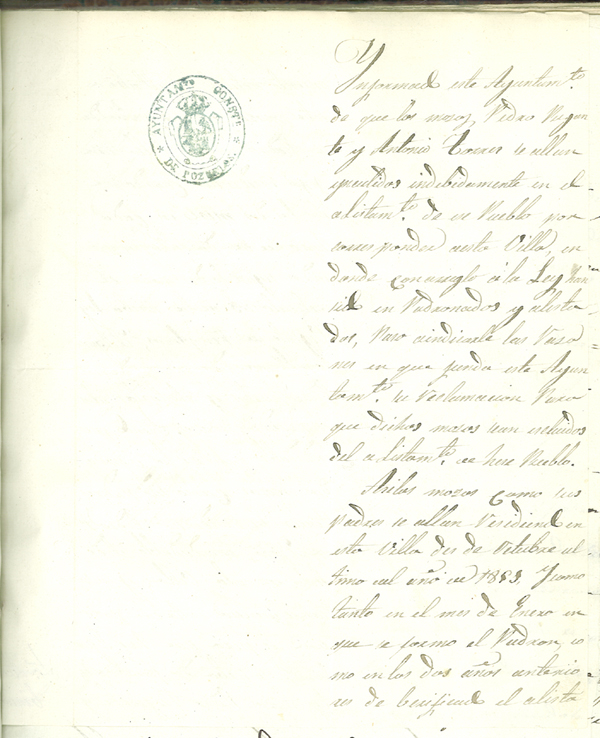 AYUNTAM.TO CONST.L
DE POZUELOS
Ynformado este Ayuntam.to
de que los mozos, Pedro
te y Antonio se allan
indebidamente en el
alistam.to de ese Pueblo por
corresponder a esta Villa, en
donde con arreglo á la Ley han
sido en Padronados y alista
dos, Paso aindicarle las Razo
nes en que funda este Ayun
tam.to su Reclamacion Para
que dichos mozos sean escluidos
del alistam.to de hese Pueblo.
mozos como sus
Padres se allan Residiendo en
esta Villa des de Octubre ul
timo del año de 1853. Y como
tanto en el mes de Enero en
que se formo el Padron, co
mo en los dos años anterio
res de el alista